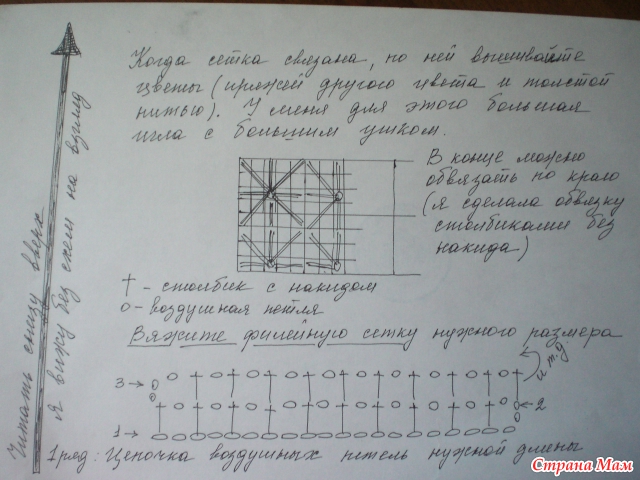 Читать снизу вверх
я вяжу без схем на взгляд
Когда сетка связана, по ней вышивайте
цветы (пряжей другого цвета и толстой
нитью). У меня для этого большая
игла с большим ушком.
В конце можно
обвязать по краю
(я сделала обвязку
столбиками без
накида)
† - столбик с накидом
о - воздушная петля
Вяжите филейную сетку нужного размера
и т.д.
3 →
← 2
1 →
1 ряд: Цепочка воздушных петель нужной длины
Страна Мам